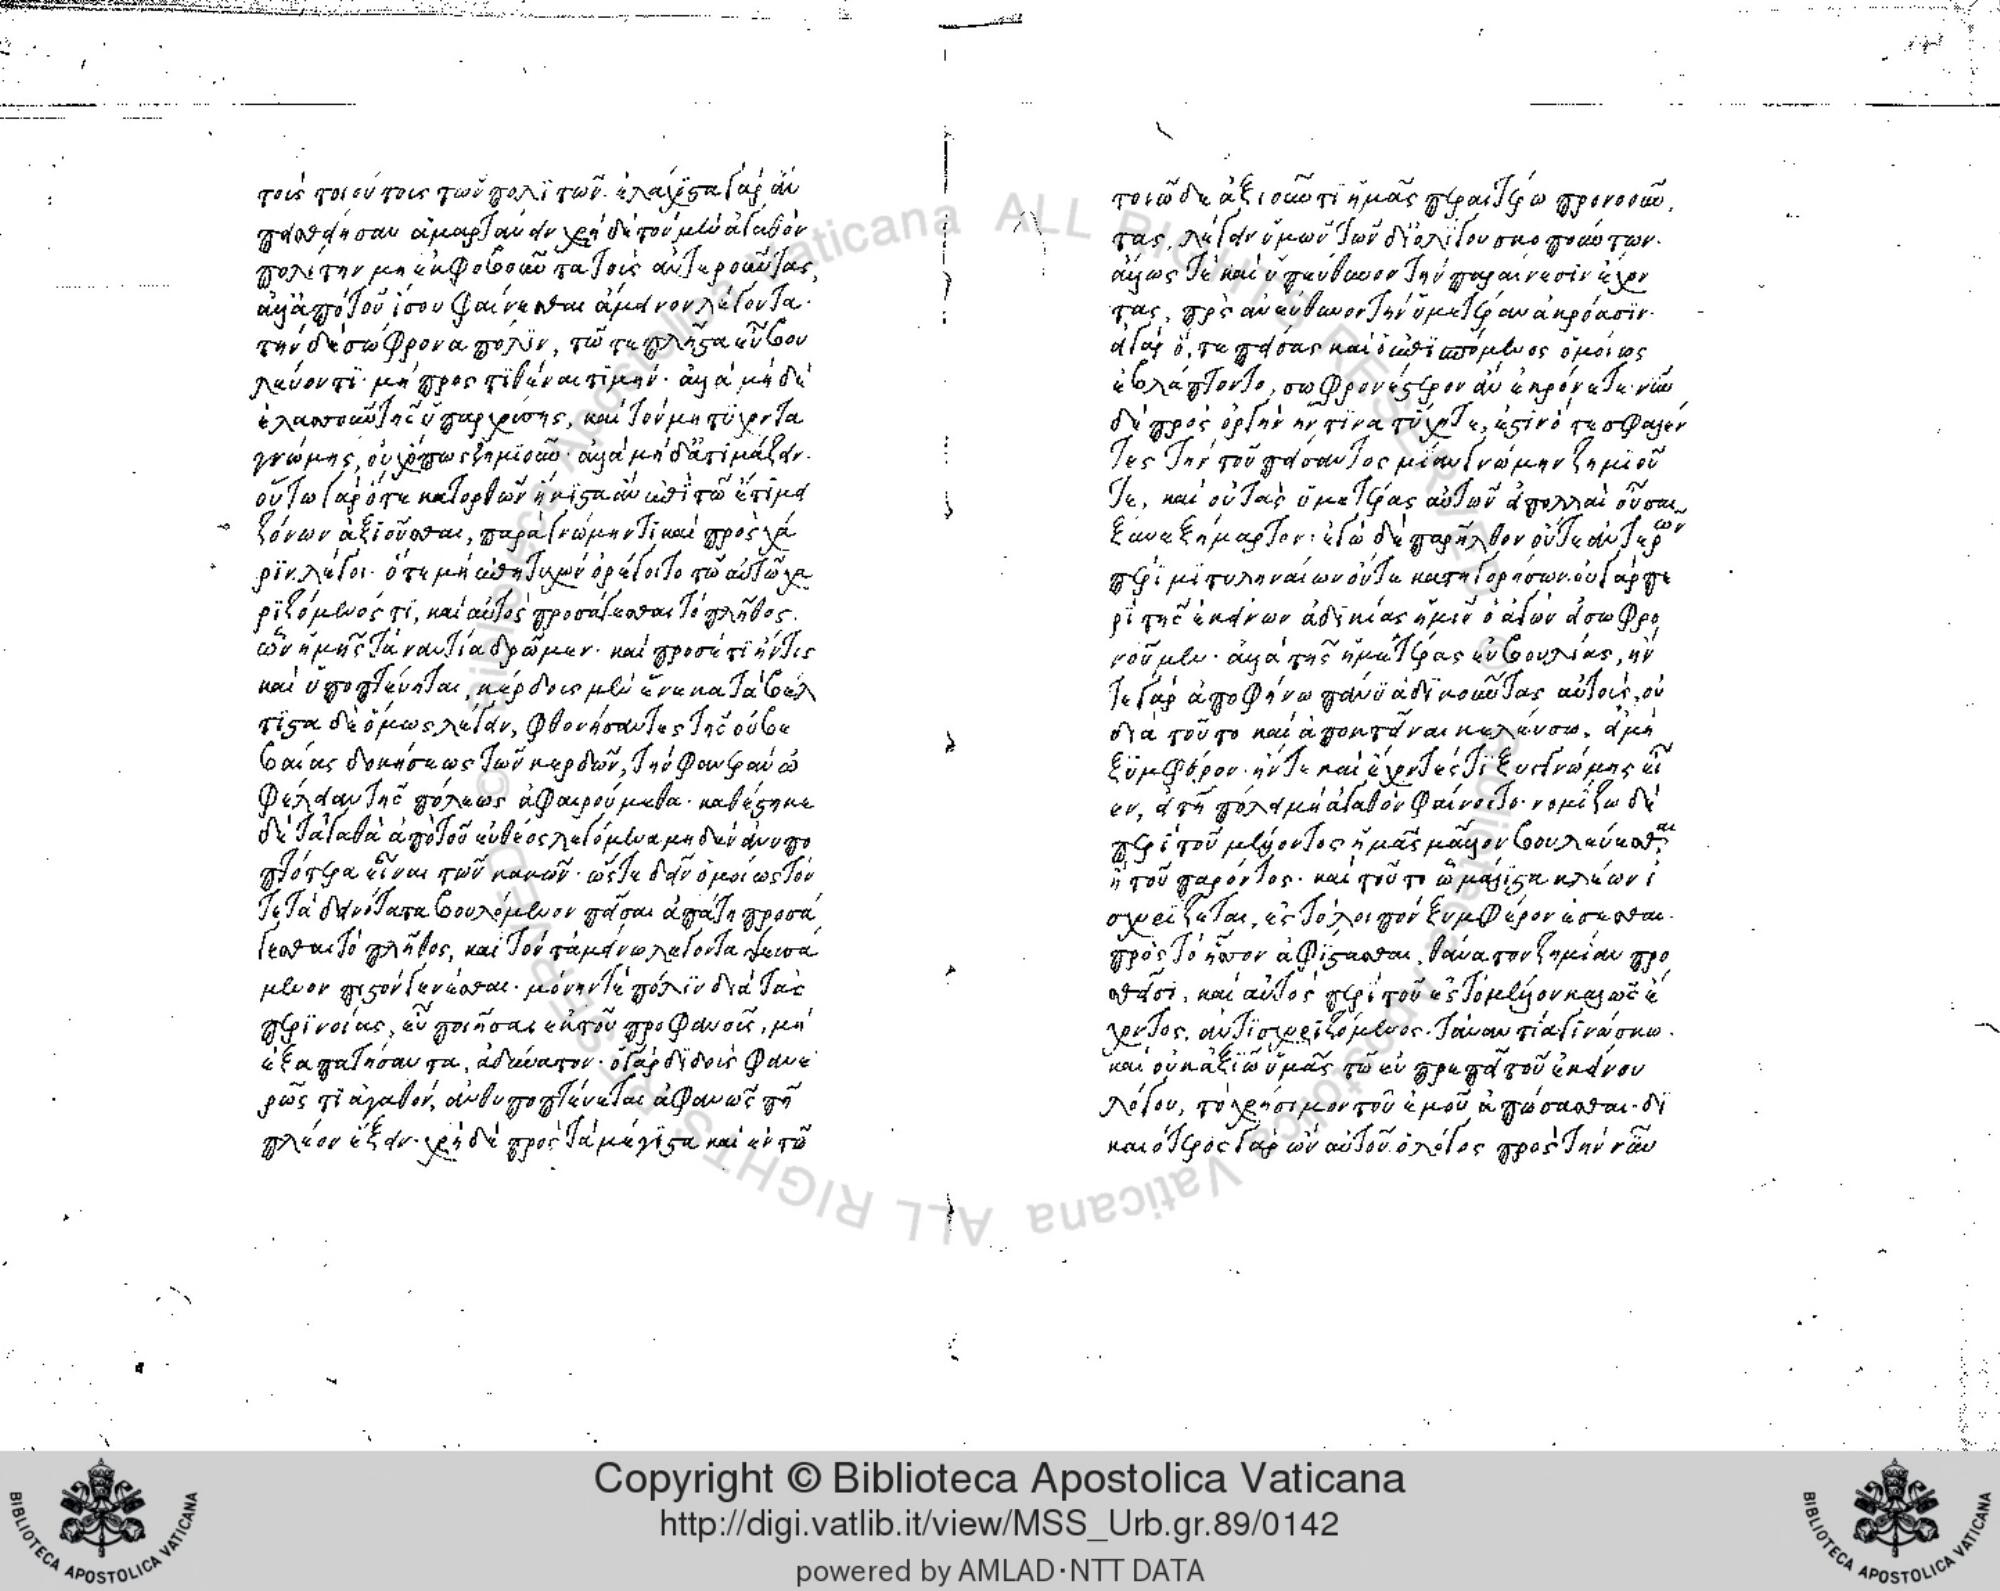 τοις τοιούτοις τῶν πολιτῶν. ἐλάχιστα γὰρ ἂν
πεισθεῖησαν ἁμαρτάνειν χρὴ δὲ τὸν μὲν ἀγαθὸν
πολίτην μὴ ἐκφοβοῦντα τοὺς ἀντεροῦντας,
ἀλλ' ἀπὸ τοῦ ἴσου φαίνεσθαι ἄμεινον λέγοντα.
τὴν δὲ σώφρονα πόλιν, τῶ τε πλεῖστα εὖ βου
λεύοντι. μὴ προστιθέναι τιμήν. ἀλλὰ μὴ δὲ
ἐλασσοῦν τῆς ὑπαρχούσης, καὶ τὸν μὴ τυχόντα
γνώμης, οὐχ ὅπως ζημιοῦν. ἀλλὰ μὴ δ' ἀτιμάζειν.
οὕτω γὰρ ὅ τε κατορθῶν ἥκιστα ἂν ἐπὶ τῶ ἔτι μει
ζόνων ἀξιοῦσθαι, παρὰ γνώμην τι καὶ πρὸς χά
ριν λέγοι. ὅ τε μὴ ἐπιτυχὼν ὀρέγοιτο τῶ αὐτῶ χα
ριζόμενός τι, καὶ αὐτὸς προσάγεσθαι τὸ πλῆθος.
ὧν ἡμεῖς τἀναντία δρῶμεν. καὶ προσέτι ἤν τις
καὶ ὑποπτεύηται, κέρδους μὲν ἕνεκα τὰ βέλ
τιστα δὲ ὅμως λέγειν, φθονήσαντες τῆς οὐ βε
βαίας δοκήσεως τῶν κερδῶν, τὴν φανερὰν ὠ
φέλειαν τῆς πόλεως ἀφαιρούμεθα. καθέστηκε
δὲ τἀγαθὰ ἀπὸ τοῦ εὐθέος λεγόμενα μηδὲν ἀνυπο
πτότερα εἶναι τῶν κακῶν. ὥστε δεῖν ὁμοίως τόν
τε τὰ δεινότατα βουλόμενον πεῖσαι ἀπάτη προσά
γεσθαι τὸ πλῆθος, καὶ τὸν τὰ ἀμείνω λέγοντα ψευσά
μενον πιστὸν γενέσθαι. μόνην τὲ πόλιν διὰ τὰς
περινοίας, εὖ ποιῆσαι ἐκ τοῦ προφανοῦς, μὴ
ἐξαπατήσαντα, ἀδύνατον. ὁ γὰρ διδοὺς φανε
ρῶς τι ἀγαθόν, ἀνθυποπτεύεται ἀφανῶς πῃ
πλέον ἕξειν. χρὴ δὲ πρὸς τὰ μέγιστα καὶ ἐν τῶ
τοιῶδε ἀξιοῦν τι ἡμᾶς περαιτέρω προνοοῦν
τας, λέγειν ὑμῶν τῶν δι' ὀλίγου σκοπούντων.
ἄλλως τε καὶ ὑπεύθυνον τὴν παραίνεσιν ἔχον
τας, πρὸς ἀνεύθυνον τὴν ὑμετέραν ἀκρόασιν.
εἰ γὰρ ὅ, τε πείσας καὶ ὁ ἐπισπόμενος ὁμοίως
ἐβλάπτοντο, σωφρονέστερον ἂν ἐκρίνετε. νῦν
δὲ πρὸς ὀργὴν ἥν τινα τύχητε, ἔστιν ὅ τε σφαλέν
τες τὴν τοῦ πείσαντος μίαν γνώμην ζημιοῦ
τε, καὶ οὐ τὰς ὑμετέρας αὐτῶν εἰ πολλαὶ οὖσαι
ξυνεξήμαρτον. ἐγὼ δὲ παρῆλθον οὔτε ἀντερῶν
περὶ μιτυληναίων οὔτε κατηγορήσων. οὐ γὰρ πε
ρὶ τῆς ἐκείνων ἀδικίας ἡμῖν ὁ ἀγὼν εἰ σωφρο
νοῦμεν. ἀλλὰ τῆς ἡμετέρας εὐβουλίας, ἤν
τε γὰρ ἀποφήνω πάνυ ἀδικοῦντας αὐτοὺς, οὐ
διὰ τοῦτο καὶ ἀποκτεῖναι κελεύσω, εἰ μὴ
ξύμφορον. ἤν τε καὶ ἔχοντές τι ξυγγνώμης εἶ
εν, εἰ τῆ πόλει μὴ ἀγαθὸν φαίνοιτο. νομίζω δὲ
περὶ τοῦ μέλλοντος ἡμᾶς μᾶλλον βουλεύεσθαι
ἢ τοῦ παρόντος. καὶ τοῦτο ὃ μάλιστα κλέων ἰ
σχυρίζεται, ἐς τὸ λοιπὸν ξυμφέρον ἔσεσθαι.
πρὸς τὸ ἧσσον ἀφίστασθαι, θάνατον ζημίαν προ
θεῖσι, καὶ αὐτὸς περὶ τοῦ ἐς τὸ μέλλον καλῶς ἔ
χοντος, ἀντισχυριζόμενος. τἀναντία γινώσκω.
καὶ οὐκ ἀξιῶ ὑμᾶς τῶ εὐπρεπεῖ τοῦ ἐκείνου
λόγου, τὸ χρήσιμον τοῦ ἐμοῦ ἀπώσασθαι. δι
καιότερος γὰρ ὢν αὐτοῦ ὁ λόγος πρὸς τὴν νῦν
Copyright © Biblioteca Apostolica Vaticana
http://digi.vatlib.it/view/MSS_Urb.gr.89/0142
powered by AMLAD·NTT DATA
BIBLIOTECA APOSTOLICA VATICANA
BIBLIOTECA APOSTOLICA VATICANA